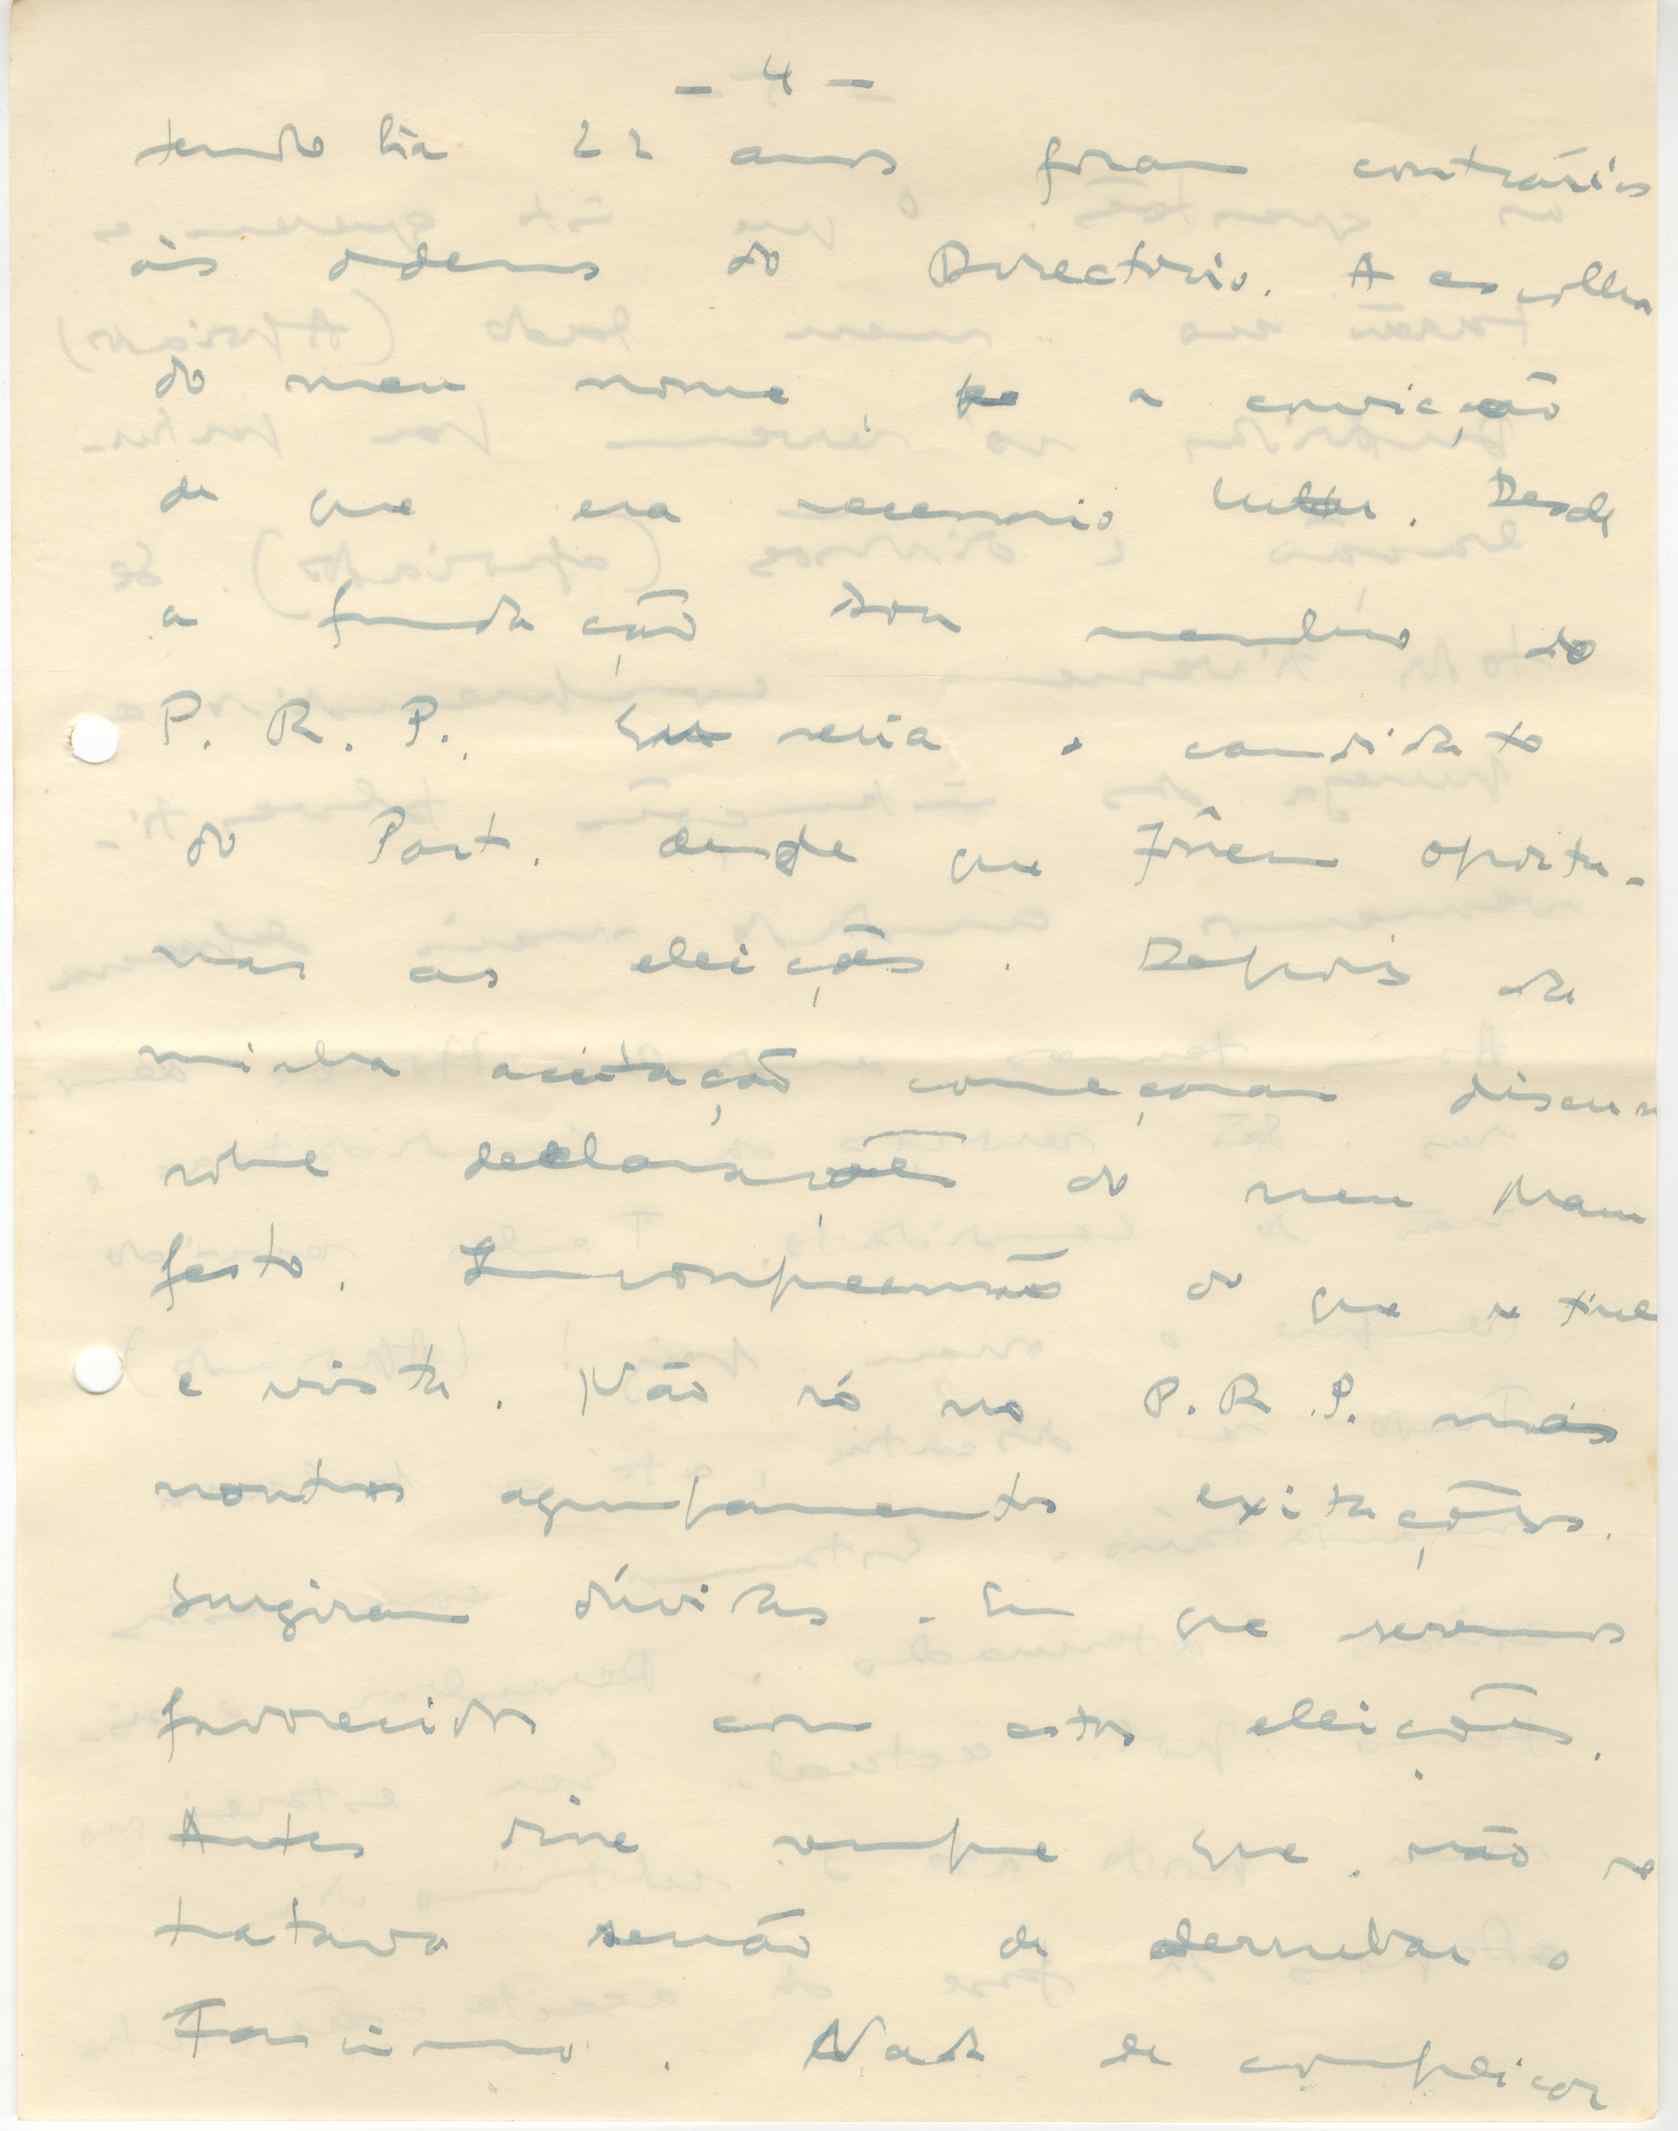 - 4 -
tendo há 22 anos foram contrários
às ordens do Directorio. A escolha
do meu nome, a convicção
de que era necessario lutar. Desde
a fundação sou membro do
P. R. P., Eu seria o candidato
do Part. desde que fôssem oportu-
nas as eleições. Depois da
minha aceitação começaram
sobre declarações do meu Mani
festo. Incompreensão do que se tive
e vista. Não só no P. R. P. mas
noutros agrupamentos exitações.
Surgiram dúvidas. Em que seremos
favorecidos com estas eleições.
Antes disse sempre que não se
tratava senão de derrubar o
Fascismo. Nada de complicar